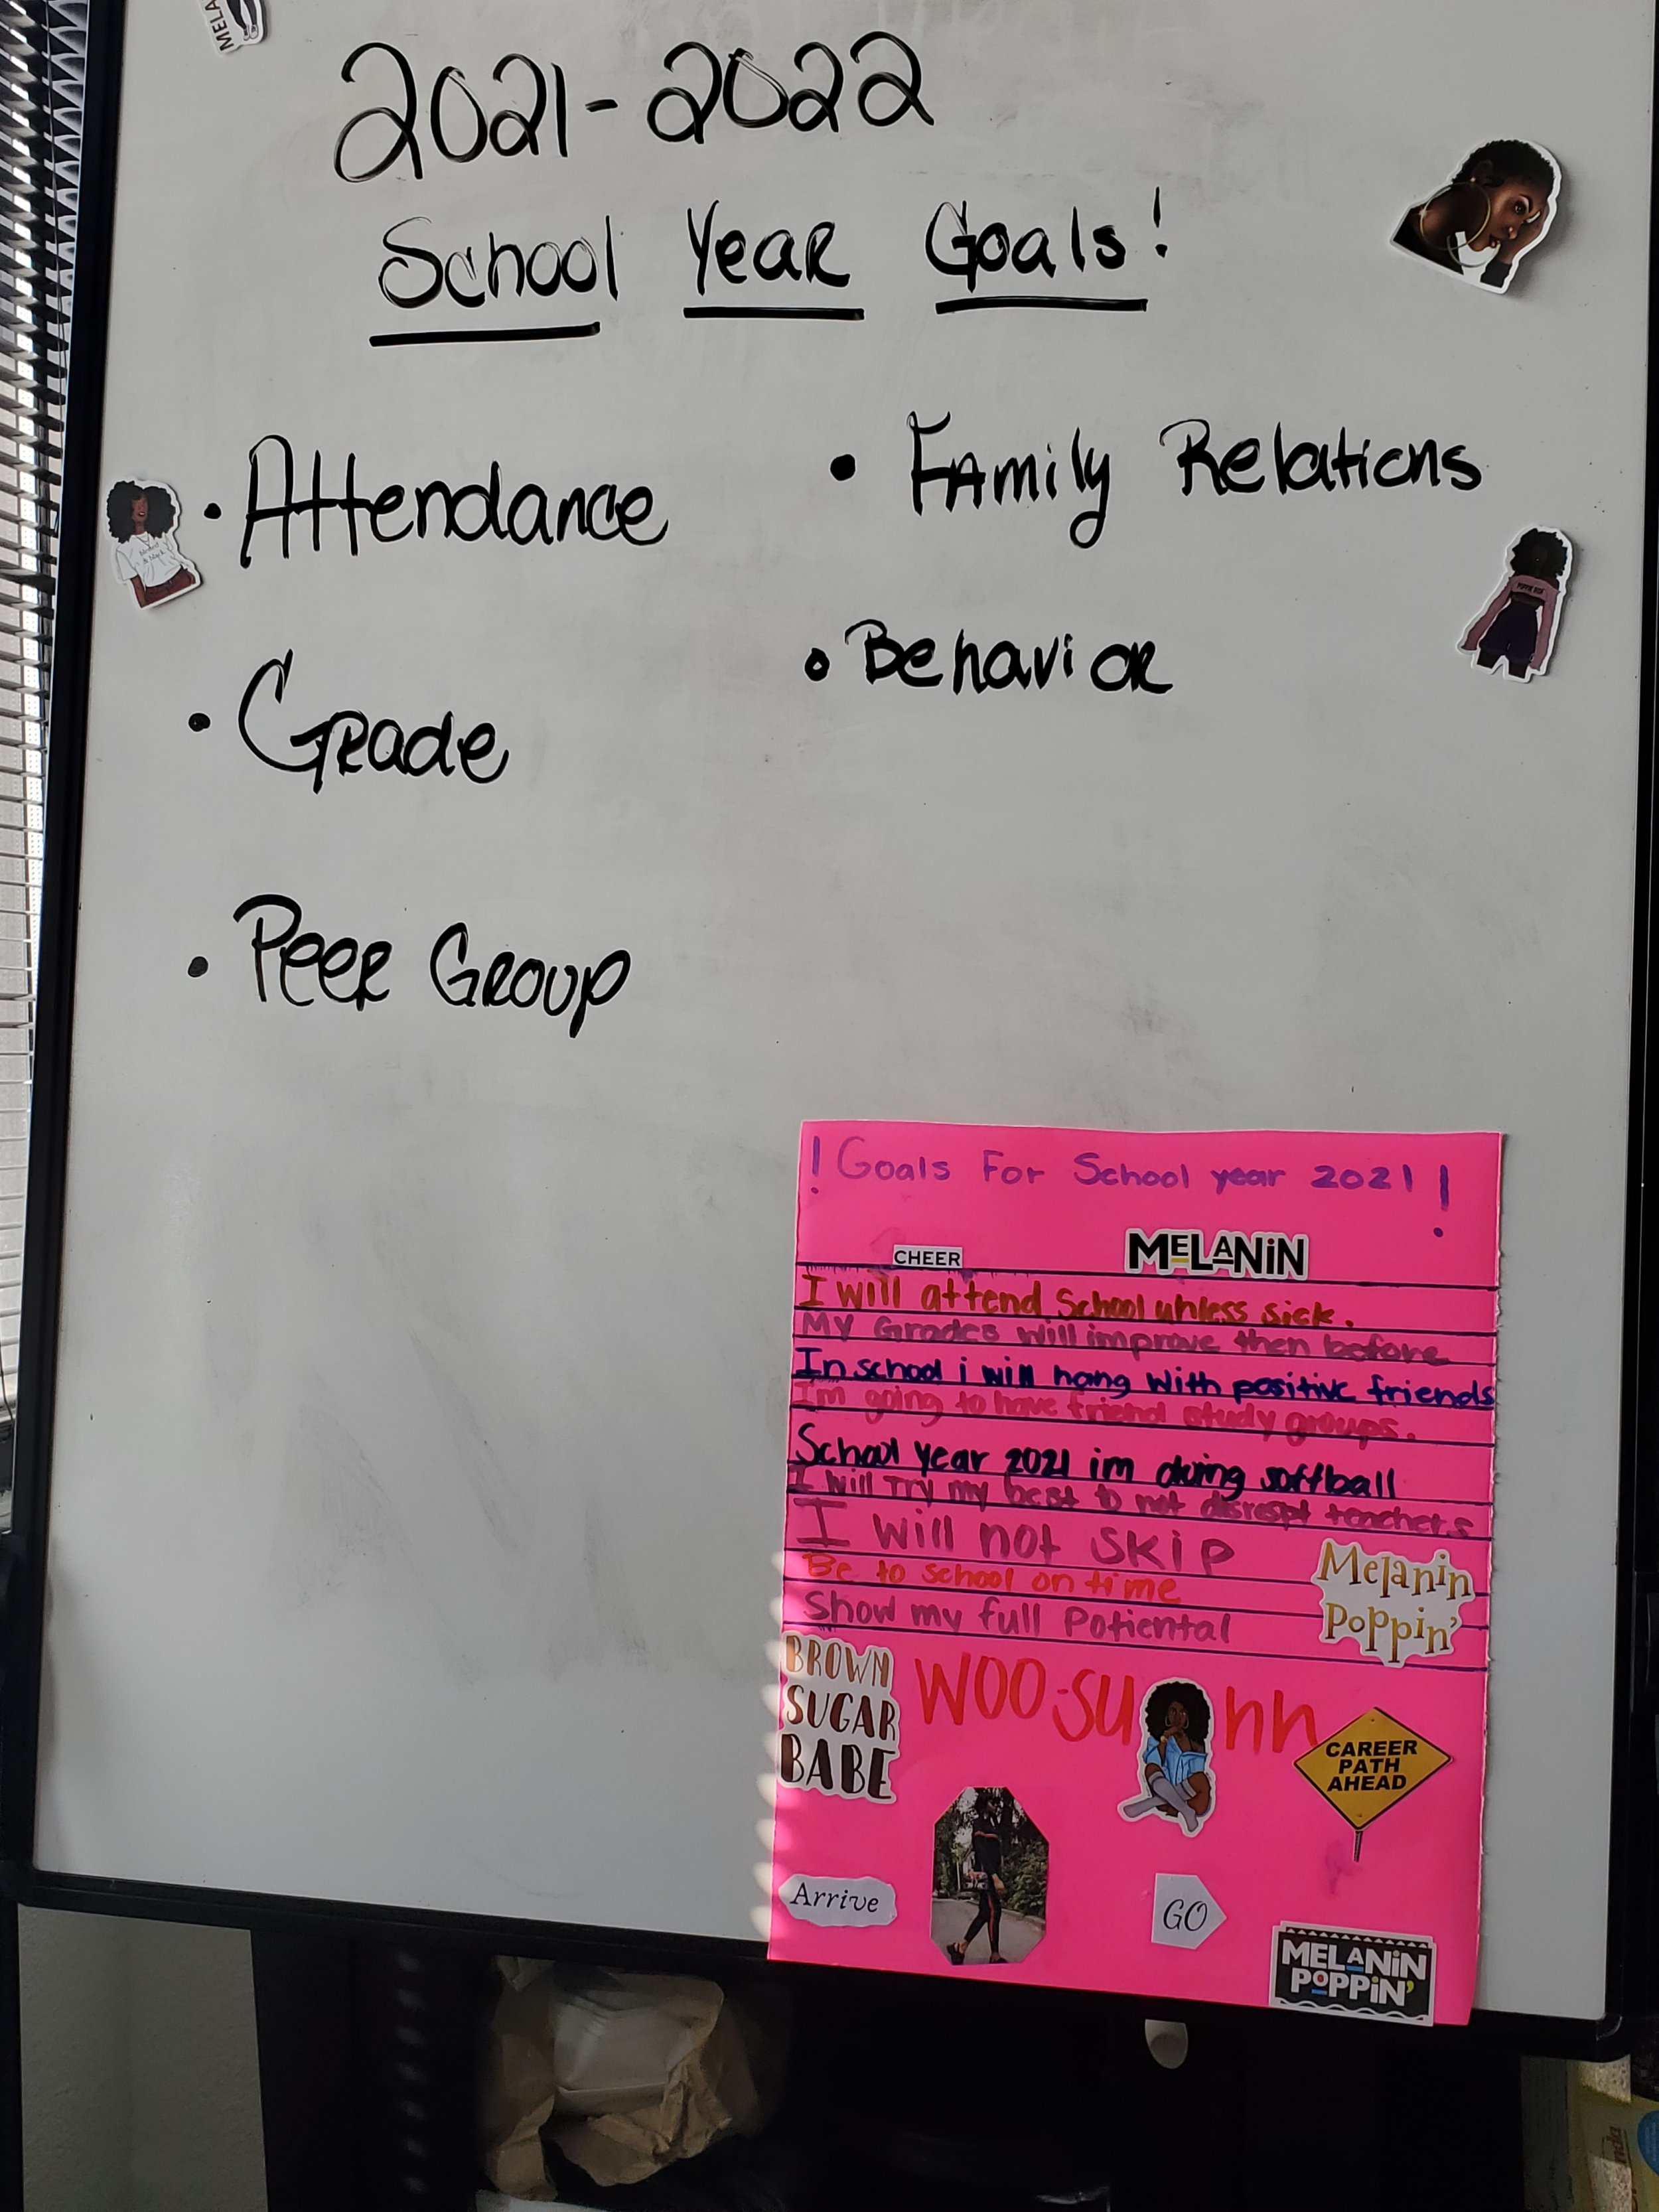 MELA
2021-2022
School Year Goals!
• Attendance
• Grade
• Peer Group
• Family Relations
• Behavior
! Goals For School year 2021!
CHEER
MELANiN
I will attend School unless sick.
My Grades will improve then before
In school i will hang with positive friends
I'm going to have friend study groups.
School year 2021 im doing softball
I will Try my best to not disrespt teachers
I will not skip
Be to school on time
Show my full Potiental
Melanin
Poppin'
BROWN
SUGAR
BABE
WOO-SU
hh
CAREER
PATH
AHEAD
Arrive
GO
MELANiN
POPPiN'